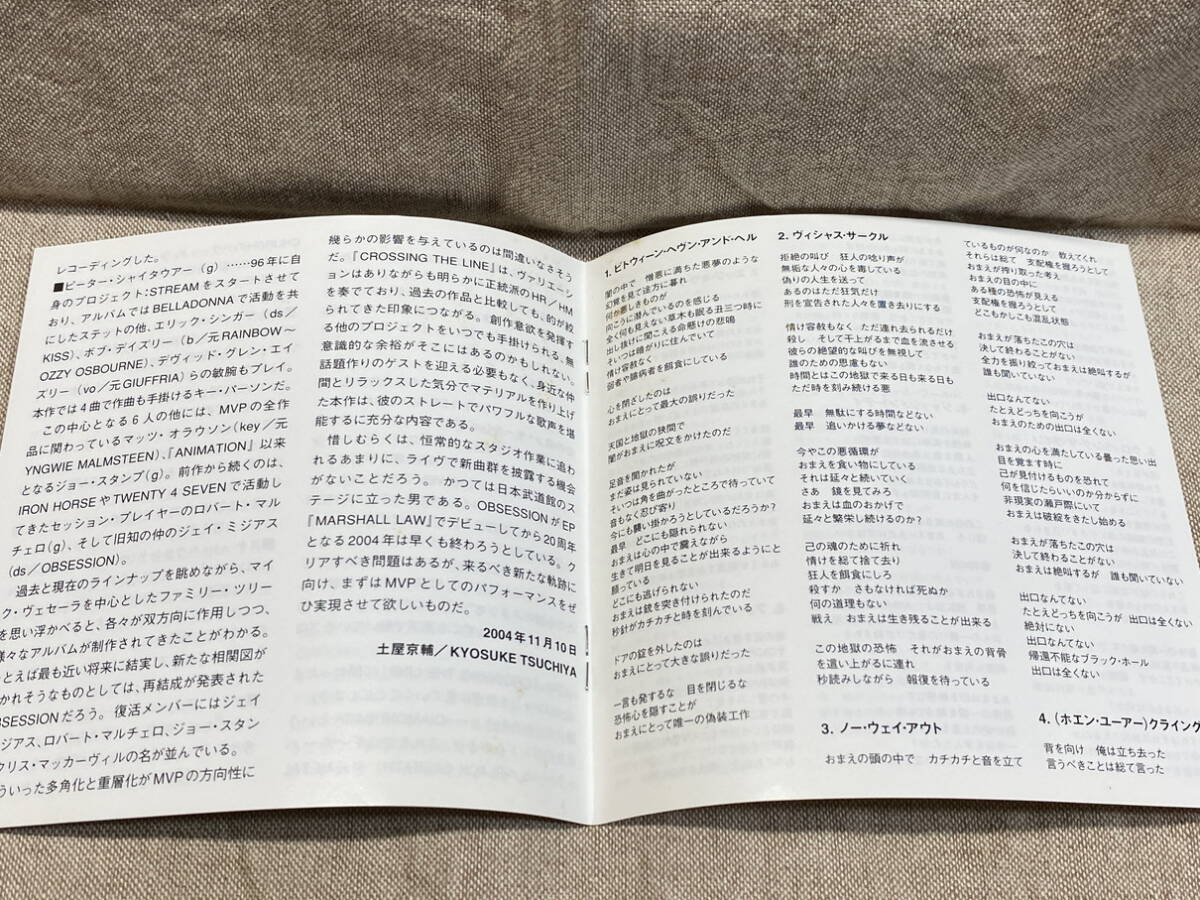 レコーディングした。
■ピーター・シャイタウアー（g）……96年に自
身のプロジェクト：STREAMをスタートさせて
おり、アルバムではBELLADONNAで活動を共
にしたステットの他、エリック・シンガー（ds／
KISS）、ボブ・デイズリー（b／元RAINBOW〜
OZZY OSBOURNE）、デヴィッド・グレン・エイ
ズリー（vo／元GIUFFRIA）らの敏腕もプレイ。
本作では4曲で作曲も手掛けるキー・パーソンだ。
この中心となる6人の他には、MVPの全作
品に関わっているマッツ・オラウソン（key／元
YNGWIE MALMSTEEN）、『ANIMATION』以来
となるジョー・スタンプ（g）。前作から続くのは、
IRON HORSEやTWENTY 4 SEVENで活動し
てきたセッション・プレイヤーのロバート・マル
チェロ（g）、そして旧知の仲のジェイ・ミジアス
（ds／OBSESSION）。
過去と現在のラインナップを眺めながら、マイ
ク・ヴェセーラを中心としたファミリー・ツリー
を思い浮かべると、各々が双方向に作用しつつ、
様々なアルバムが制作されてきたことがわかる。
とえば最も近い将来に結実し、新たな相関図が
かれそうなものとしては、再結成が発表された
BSESSIONだろう。復活メンバーにはジェイ
ジアス、ロバート・マルチェロ、ジョー・スタン
クリス・マッカーヴィルの名が並んでいる。
ういった多角化と重層化がMVPの方向性に
幾らかの影響を与えているのは間違いなさそう
だ。『CROSSING THE LINE』は、ヴァリエーシ
ョンはありながらも明らかに正統派のHR／HM
を奏でており、過去の作品と比較しても、的が絞
られてきた印象につながる。創作意欲を発揮す
る他のプロジェクトをいつでも手掛けられる、無
意識的な余裕がそこにはあるのかもしれない。
話題作りのゲストを迎える必要もなく、身近な仲
間とリラックスした気分でマテリアルを作り上げ
た本作は、彼のストレートでパワフルな歌声を堪
能するに充分な内容である。
惜しむらくは、恒常的なスタジオ作業に追わ
れるあまりに、ライヴで新曲群を披露する機会
がないことだろう。かつては日本武道館のス
テージに立った男である。OBSESSIONがEP
『MARSHALL LAW』でデビューしてから20周年
となる2004年は早くも終わろうとしている。ク
リアすべき問題はあるが、来るべき新たな軌跡に
向け、まずはMVPとしてのパフォーマンスをぜ
ひ実現させて欲しいものだ。
2004年11月10日
土屋京輔／KYOSUKE TSUCHIYA
1. ビトウィーン・ヘヴン・アンド・ヘル
闇の中で　憎悪に満ちた悪夢のような
幻覚を見て途方に暮れ
何か悪しきものが
向こうに潜んでいるのを感じる
全く何も見えない草木も眠る丑三つ時に
出し抜けに聞こえる命懸けの悲鳴
そいつは暗がりに住んでいて
情け容赦なく
弱者や臆病者を餌食にしている
心を閉ざしたのは
おまえにとって最大の誤りだった
天国と地獄の狭間で
闇がおまえに呪文をかけたのだ
足音を聞かれたが
まだ姿は見られていない
そいつは角を曲がったところで待っていて
音もなく忍び寄り
今にも襲い掛かろうとしているだろうか？
最早　どこにも隠れられない
おまえは心の中で震えながら
生きて明日を見ることが出来るようにと
願っている
どこにも逃げられない
おまえは銃を突き付けられたのだ
秒針がカチカチと時を刻んでいる
ドアの錠を外したのは
おまえにとって大きな誤りだった
一言も発するな　目を閉じるな
恐怖心を隠すことが
おまえにとって唯一の偽装工作
2. ヴィシャス・サークル
拒絶の叫び　狂人の唸り声が
無垢な人々の心を毒している
偽りの人生を送って
あるのはただ狂気だけ
刑を宣告された人々を置き去りにする
情け容赦もなく　ただ連れ去られるだけ
殺し　そして干上がるまで血を流させる
彼らの絶望的な叫びを無視して
誰のための思慮もない
時間とはこの地獄で来る日も来る日も
ただ時を刻み続ける悪
最早　無駄にする時間などない
最早　追いかける夢などない
今やこの悪循環が
おまえを食い物にしている
それは延々と続いていく
さあ　鏡を見てみろ
おまえは血のおかげで
延々と繁栄し続けるのか？
己の魂のために祈れ
情けを総て捨て去り
狂人を餌食にしろ
殺すか　さもなければ死ぬか
何の道理もない
戦え　おまえは生き残ることが出来る
この地獄の恐怖　それがおまえの背骨
を這い上がるに連れ
秒読みしながら　報復を待っている
3. ノー・ウェイ・アウト
おまえの頭の中で　カチカチと音を立て
ているものが何なのか　教えてくれ
それらは総て　支配権を握ろうとして
おまえが搾り取った考え
おまえの目の中に
ある種の恐怖が見える
支配権を握ろうとして
どこかしこも混乱状態
おまえが落ちたこの穴は
決して終わることがない
全力を振り絞っておまえは絶叫するが
誰も聞いていない
出口なんてない
たとえどっちを向こうが
おまえのための出口は全くない
おまえの心を満たしている曇った思い出
目を覚ます時に
己が見付けるものを恐れて
何を信じたらいいのか分からずに
非現実の瀬戸際にいて
おまえは破綻をきたし始める
おまえが落ちたこの穴は
決して終わることがない
おまえは絶叫するが　誰も聞いていない
出口なんてない
たとえどっちを向こうが　出口は全くない
絶対にない
出口なんてない
帰還不能なブラック・ホール
出口は全くない
4.（ホエン・ユーアー）クライング
背を向け　俺は立ち去った
言うべきことは総て言った